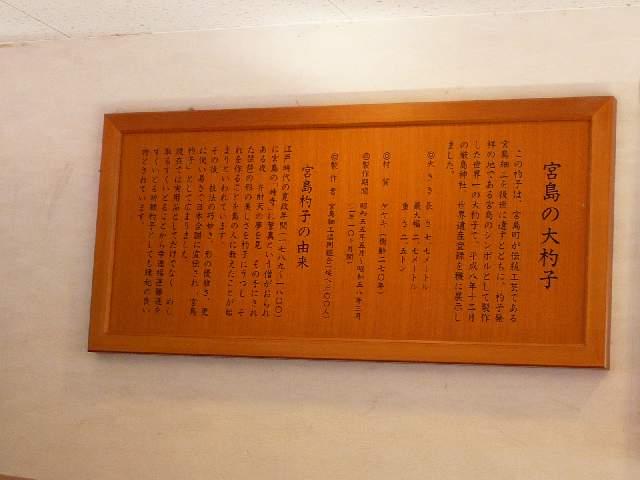 宮島の大杓子
この杓子は、宮島町が伝統工芸である
宮島細工を後世に遺すとともに、杓子発
祥の地である宮島のシンボルとして製作
した世界一の大杓子で、平成八年十二月
の厳島神社 世界遺産登録を機に展示し
ました。
◎大きさ 長さ 七・七メートル
最大幅 二・七メートル
重さ 二・五トン
◎材質 ケヤキ(樹齢二七〇年)
◎製作期間 昭和五五年五月~昭和五八年三月
(二年一〇ヶ月間)
◎製作者 宮島細工協同組合(延べ三〇〇人)
宮島杓子の由来
江戸時代の寛政年間(一七八九~一八〇〇)
に宮島の神泉寺に誓真という僧がおられ
ある夜 弁財天の夢を見 その手にされ
た琵琶の形の美しさを杓子にうつし そ
れを作ることを島の人に教えたことが始
まりといわれています。
その後、技法の巧みさ、形の優雅さ、更
に使い易さで日本全国に宣伝され「宮島
杓子」として広まりました。
現在では実用品としてだけでなく めし
取る すくいとることから幸運 福運 勝運を
すくいとる祈願杓子としても縁起の良い
持とされています。